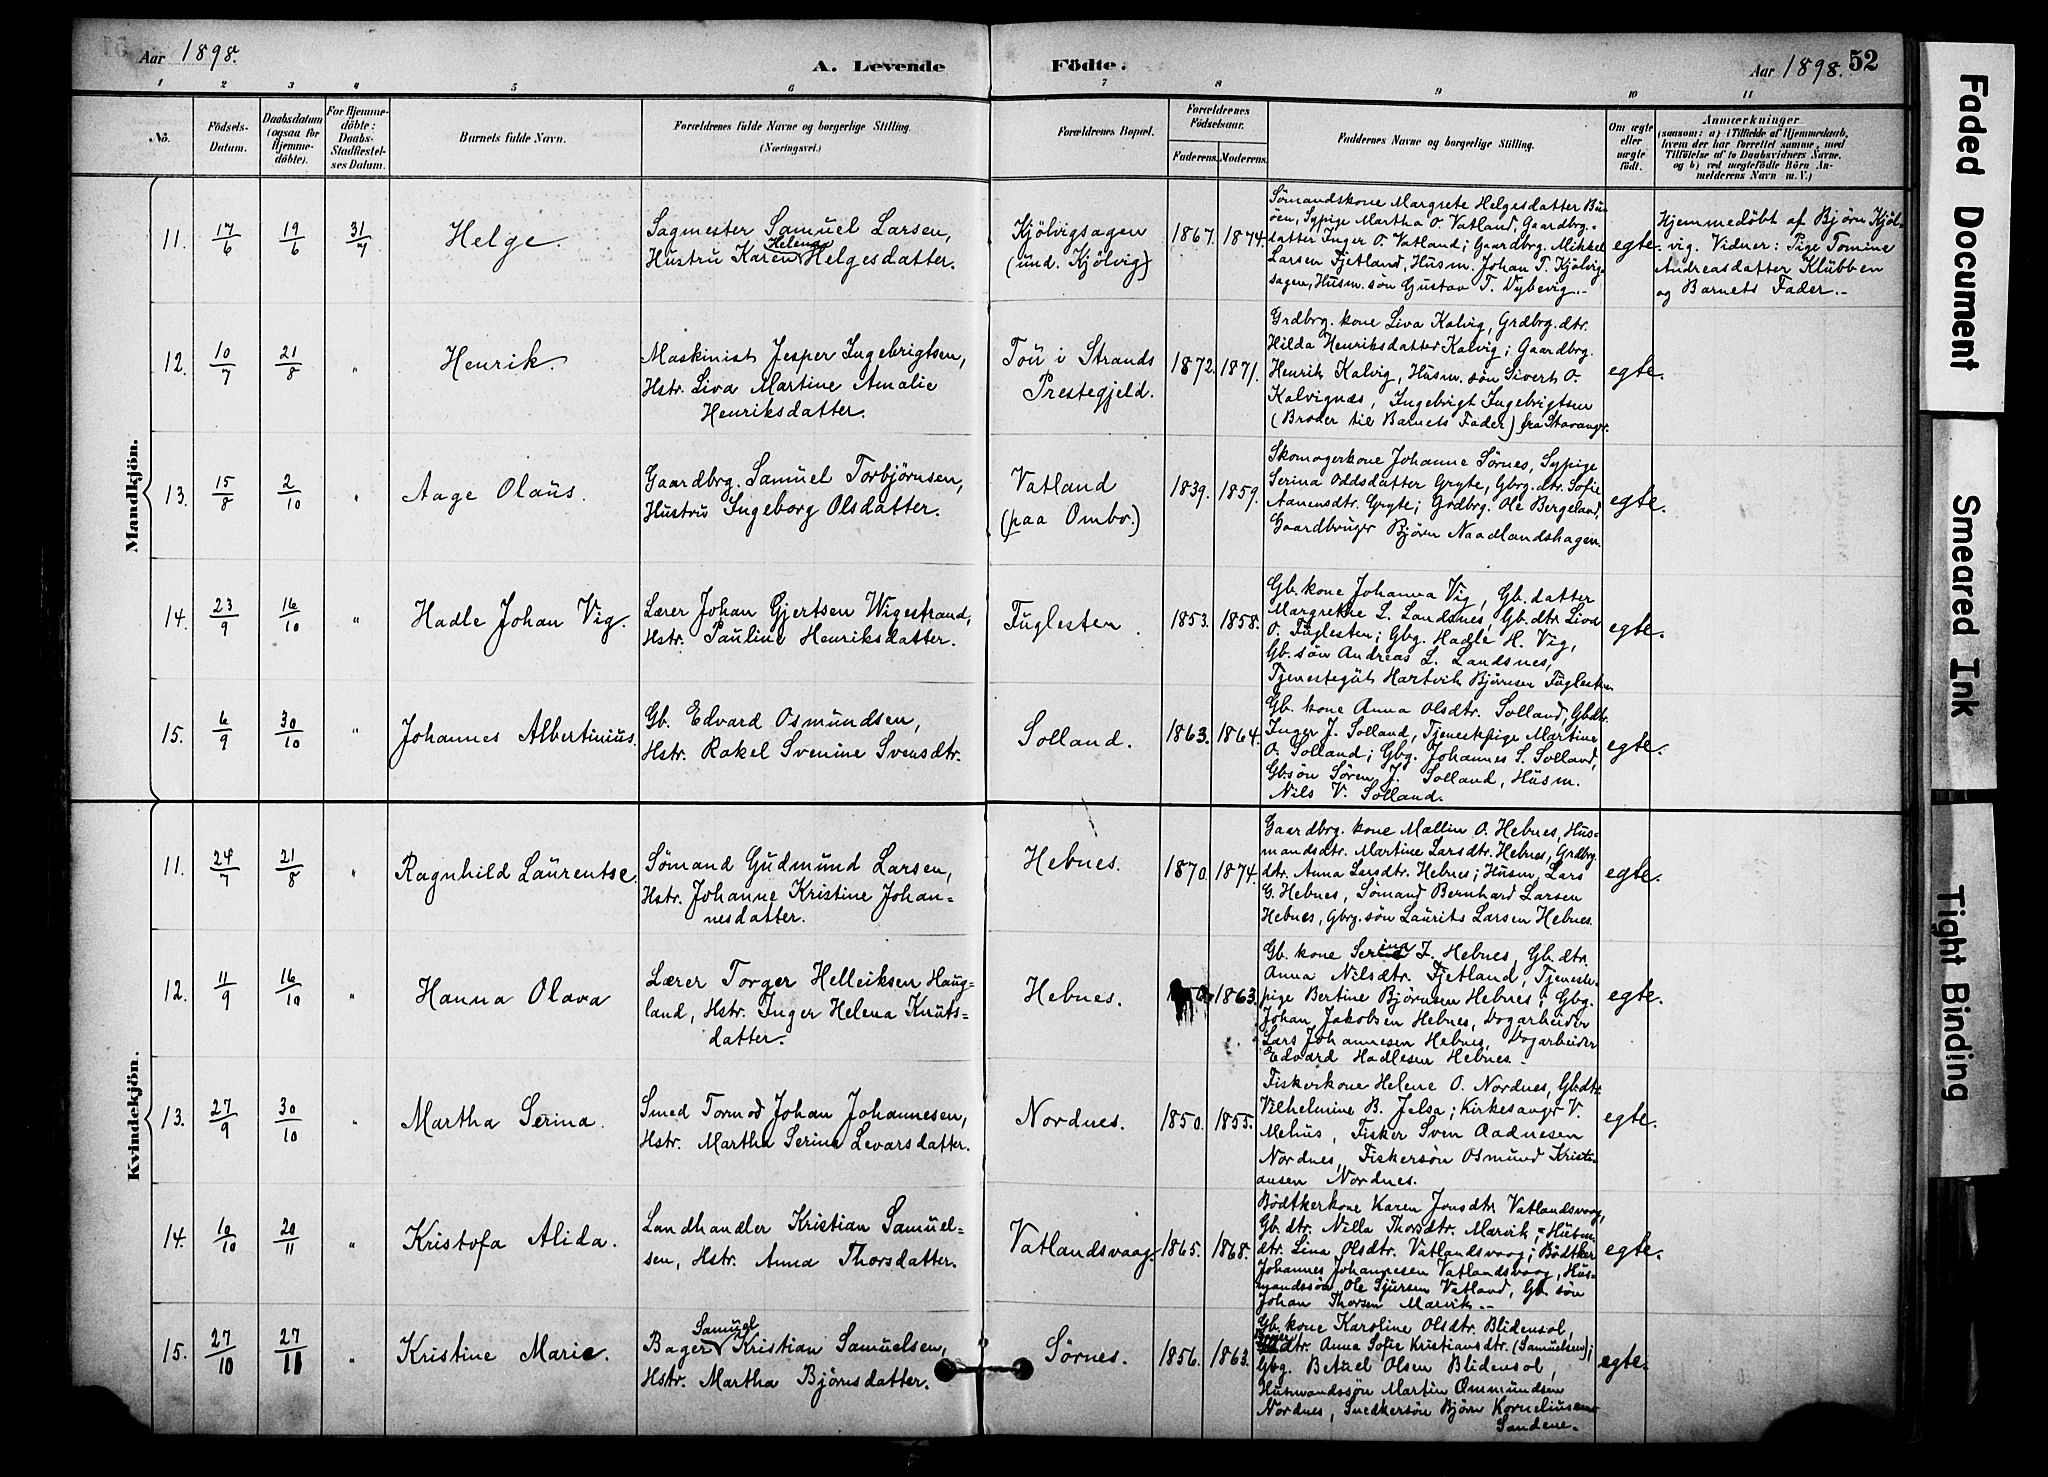 Aar 1898.
A. Levende Födte.
Aar 1898. 52
1 2 3 4 5 6 7 8 9 10 11
No.
Födsels-
Datum.
Daabsdatum
(ogsaa for
Hjemme-
döbte).
For Hjemme-
döbte:
Daabs-
Stadfæstel-
ses Datum.
Barnets fulde Navn.
Forældrenes fulde Navne og borgerlige Stilling.
(Næringsvei.)
Forældrenes Bopæl.
Forældrenes
Födselsaar.
Faderens. Moderens.
Faddernes Navne og borgerlige Stilling.
Om ægte
eller
uægte
födt.
Anmærkninger
(saasom: a) i Tilfælde af Hjemmedaab,
hvem der har forrettet samme, med
Tilföielse af to Daabsvidners Navne,
og b) ved uægtefödte Börn An-
melderens Navn m. V.)
Mandkjön.
11. 17/6 19/6 31/7 Helge.
Sagmester Samuel Larsen,
Hustru Karen Helena Helgesdatter.
Kjölvigsagen
(und. Kjölvig)
1867. 1874.
Sømandskone Margrete Helgesdatter Bu-
öen, Sypige Martha O. Vatland, Gaardbrg.-
datter Inger O. Vatland; Gaardbrg. Mikkel
Larsen Fjetland, Husm. Johan T. Kjölvig-
sagen, Husm. søn Gustav T. Vybevig.
egte.
Hjemmedöbt af Bjørn Kjöl-
vig. Vidner: Pige Tomine
Andreasdatter Klubben
og Barnets Fader.
12. 10/7 21/8 " Henrik.
Maskinist Jesper Ingebrigtsen,
Hstr. Liva Martine Amalie
Henriksdatter.
Tou i Strands
Prestegjeld.
1872. 1871.
Grdbrg. kone Liva Kalvig, Grdbrg. dtr.
Hilda Henriksdatter Kalvig; Gaardbrg.
Henrik Kalvig, Husm. søn Sivert O.
Kalvignæs, Ingebrigt Ingebrigtsen
(Broder til Barnets Fader) fra Stavanger.
egte.
13. 15/8 2/10 " Aage Olaus.
Gaardbrg. Samuel Torbjørnsen,
Hustru Ingeborg Olsdatter.
Vatland
(paa Ombo.)
1839. 1859.
Skomagerkone Johanne Sørnes, Sypige
Serina Oddsdatter Gryte, Gbrg. dtr. Sofie
Aanensdtr. Gryte; Grdbrg. Ole Bergeland,
Gaardbruger Bjørn Naadlandshagen.
egte.
14. 23/9 16/10 " Hadle Johan Vig.
Lærer Johan Gjertsen Wigestrand,
Hstr. Pauline Henriksdatter.
Fuglesten.
1853. 1858.
Gb. kone Johanna Vig, Gb. datter
Margrethe L. Landsnes, Gb. dtr. Liva
O. Fuglesten; Gbg. Hadle H. Vig,
Gb. søn Andreas L. Landsnes,
Tjenestegut Hartvik Bjørnsen Fuglesten
egte.
15. 6/9 30/10 " Johannes Albertinius.
Gb. Edvard Osmundsen,
Hstr. Rakel Svenine Svensdtr.
Solland.
1863. 1864.
Gb. kone Anna Olsdtr. Solland, Gbdtr.
Inger J. Solland, Tjenestpige Martine
O. Solland; Gbg. Johannes S. Solland,
Gbsøn Søren J. Solland, Husm.
Nils V. Solland.
egte.
Kvindekjön.
11. 24/7 21/8 " Ragnhild Laurentse
Sømand Gudmund Larsen,
Hstr. Johanne Kristine Johan-
nesdatter.
Hebnes.
1870. 1874.
Gaardbrg. kone Mallin O. Hebnes, Hus-
mandsdtr. Martine Larsdtr. Hebnes, Grdbrg.
dtr. Anna Larsdtr. Hebnes; Husm. Lars
G. Hebnes, Sømand Bernhard Larsen
Hebnes, Gbrg. søn Laurits Larsen Hebnes.
egte.
12. 11/9 16/10 " Hanna Olava
Lærer Torger Helleiksen Haug-
land, Hstr. Inger Helena Knuts-
datter.
Hebnes.
1863.
Gb. kone Serina J. Hebnes, Gb. dtr.
Anna Nilsdtr. Fjetland, Tjeneste-
pige Bertine Bjørnsen Hebnes; Gbg.
Johan Jakobsen Hebnes, Dagarbeider
Lars Johannesen Hebnes, Dagarbeider
Edvard Hadlesen Hebnes.
egte.
13. 27/9 30/10 " Martha Serina.
Smed Tormod Johan Johannesen,
Hstr. Martha Serine Levarsdatter.
Nordnes.
1850. 1855.
Fiskerkone Helene O. Nordnes, Gb.dtr.
Vilhelmine B. Jelsa; Kirkesanger V.
Mehus, Fisker Sven Aadnesen
Nordnes, Fiskersøn Osmund Kristi-
ansen Nordnes.
egte.
14. 10/10 20/11 " Kristofa Alida.
Landhandler Kristian Samuel-
sen, Hstr. Anna Thorsdatter.
Vatlandsvaag.
1865. 1868.
Bødtkerkone Karen Jonsdtr. Vatlandsvaag,
Gb. dtr. Nilla Thorsdtr. Marvik, Husm.
dtr. Lina Olsdtr. Vatlandsvaag; Bødtker
Johannes Johannesen Vatlandsvaag, Hus-
mandssøn Ole Sjursen Vatland, Gb. søn
Johan Thorsen Marvik.
egte.
15. 27/10 27/11 " Kristine Marie.
Bager Samuel Kristian Samuelsen,
Hstr. Martha Bjørnsdatter.
Sørnes.
1856. 1863.
Gb. kone Karoline Olsdtr. Blidensol,
dtr. Anna Sofie Kristiansdtr. (Samuelsen);
Gbg. Betuel Olsen Blidensol,
Husmandssøn Martin Ommundsen
Nordnes, Snedkersøn Bjørn Korneliusen
Sandene.
egte.
Faded Document
Smeared Ink
Tight Binding